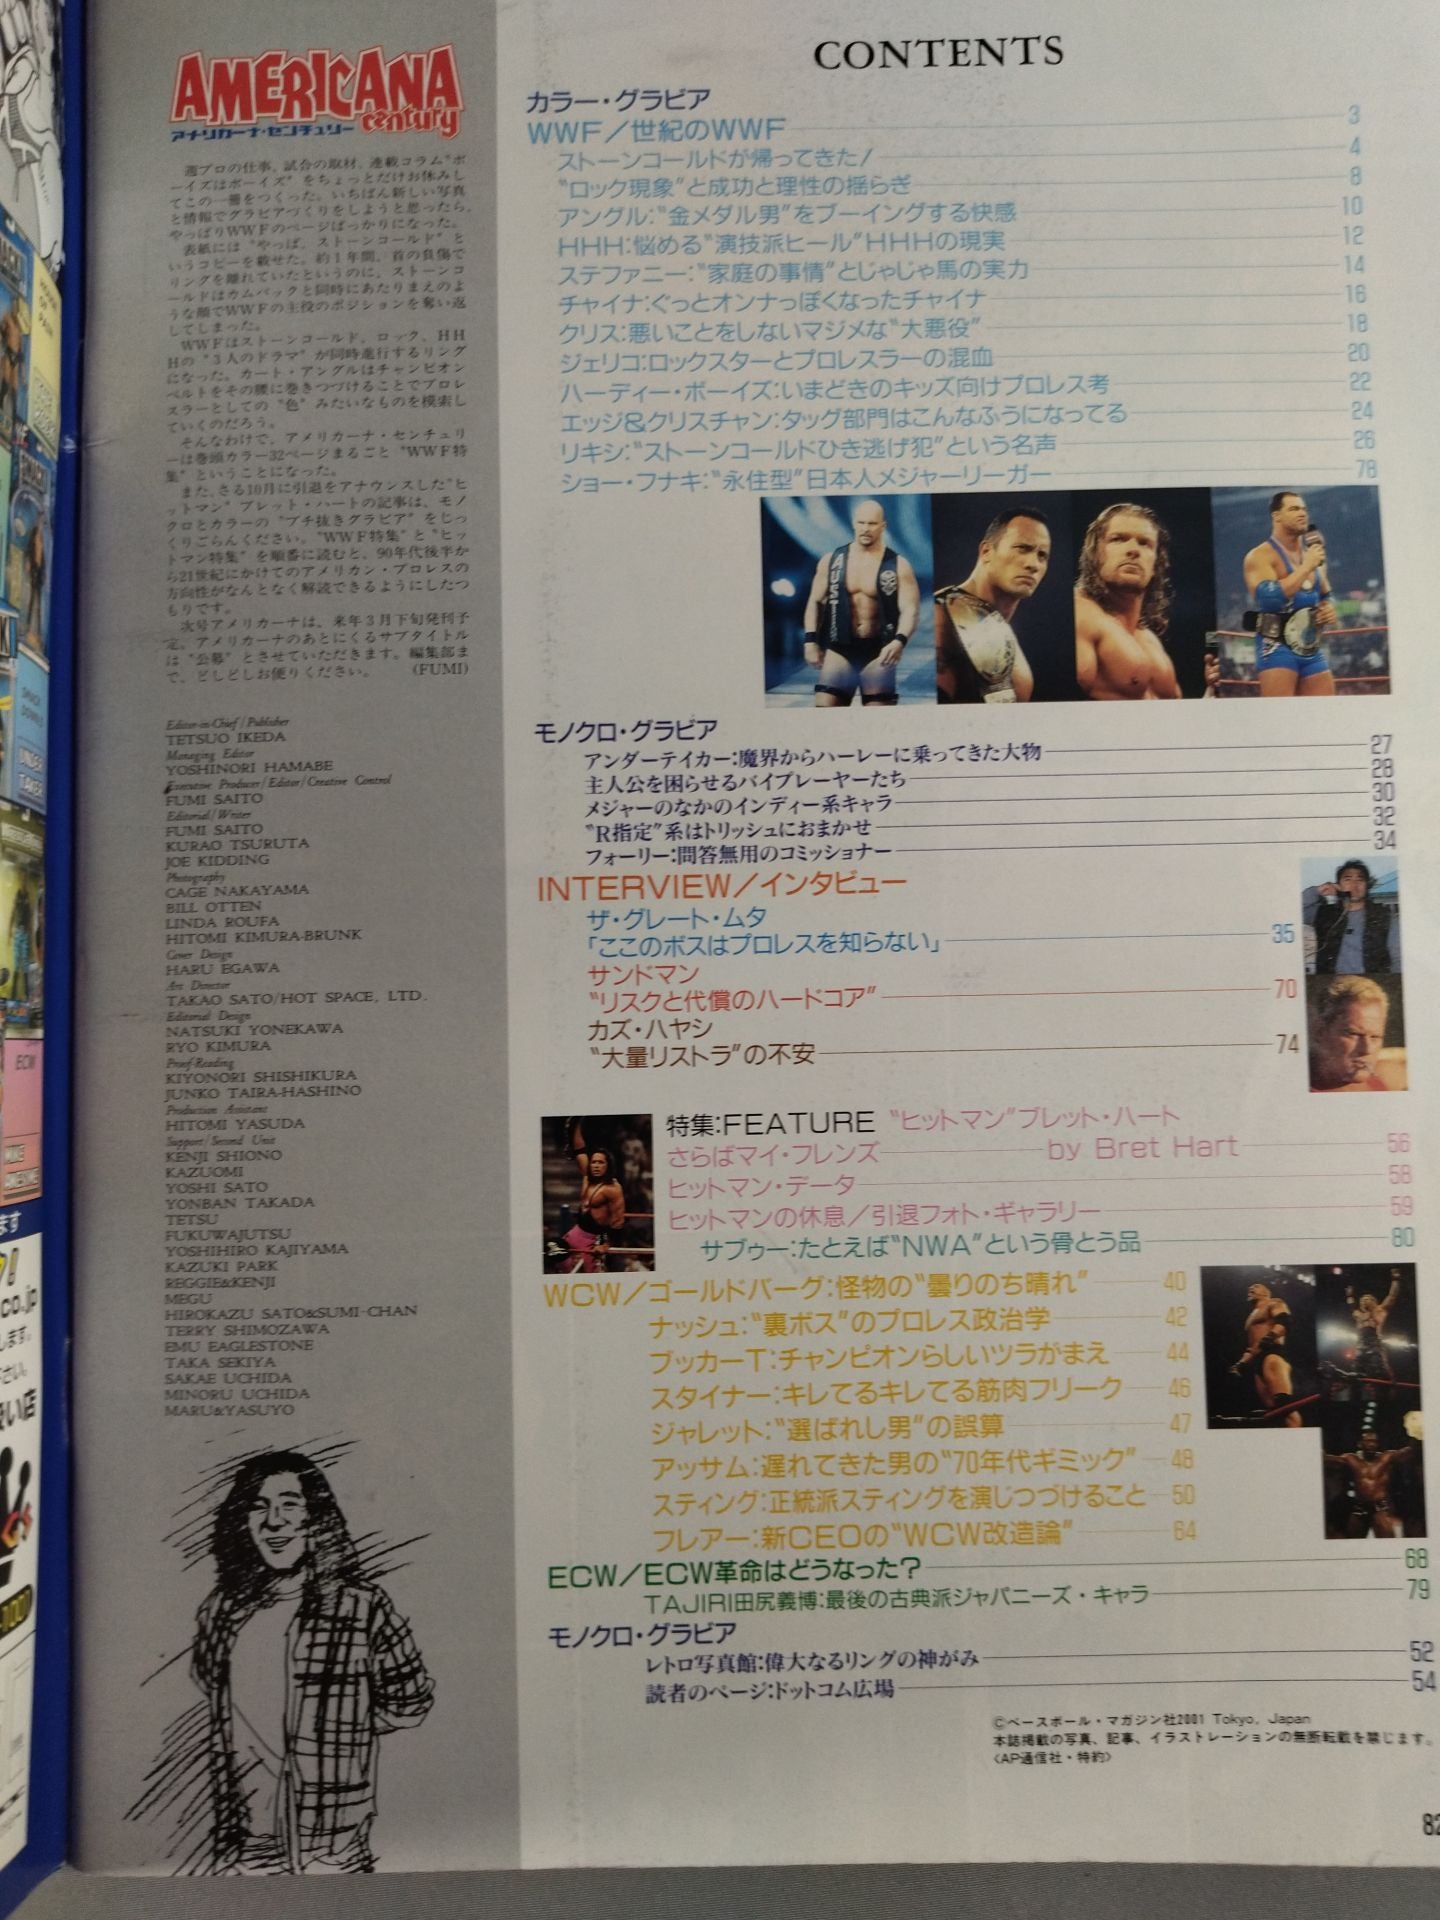 AMERICANA
century
アメリカーナ・センチュリー
週プロの仕事、試合の取材、連載コラム“ボ
ーイズはボーイズ”をちょっとだけお休みし
てこの一冊をつくった。いちばん新しい写真
と情報でグラビアづくりをしようと思ったら、
やっぱりWWFのページばっかりになった。
表紙には“やっぱ、ストーンコールド”と
いうコピーを載せた。約1年間、首の負傷で
リングを離れていたというのに、ストーンコ
ールドはカムバックと同時にあたりまえのよ
うな顔でWWFの主役のポジションを奪い返
してしまった。
WWFはストーンコールド、ロック、HH
Hの“3人のドラマ”が同時進行するリング
になった。カート・アングルはチャンピオン
ベルトをその腰に巻きつづけることでプロレ
スラーとしての“色”みたいなものを模索し
ていくのだろう。
そんなわけで、アメリカーナ・センチュリ
ーは巻頭カラー32ページまるごと“WWF特
集”ということになった。
また、さる10月に引退をアナウンスした“ヒ
ットマン”ブレット・ハートの記事は、モノ
クロとカラーの“ブチ抜きグラビア”をじっ
くりごらんください。“WWF特集”と“ヒッ
トマン特集”を順番に読むと、90年代後半か
ら21世紀にかけてのアメリカン・プロレスの
方向性がなんとなく解読できるようにしたつ
もりです。
次号アメリカーナは、来年3月下旬発刊予
定。アメリカーナのあとにくるサブタイトル
は“公募”とさせていただきます。編集部ま
で、どしどしお便りください。 (FUMI)
Editor-in-Chief/Publisher
TETSUO IKEDA
Managing Editor
YOSHINORI HAMABE
Executive Producer/Editor/Creative Control
FUMI SAITO
Editorial/Writer
FUMI SAITO
KURAO TSURUTA
JOE KIDDING
Photography
CAGE NAKAYAMA
BILL OTTEN
LINDA ROUFA
HITOMI KIMURA-BRUNK
Cover Design
HARU EGAWA
Art Director
TAKAO SATO/HOT SPACE, LTD.
Editorial Design
NATSUKI YONEKAWA
RYO KIMURA
Proof-Reading
KIYONORI SHISHIKURA
JUNKO TAIRA-HASHINO
Production Assistant
HITOMI YASUDA
Support/Second Unit
KENJI SHIONO
KAZUOMI
YOSHI SATO
YONBAN TAKADA
TETSU
FUKUWAJUTSU
YOSHIHIRO KAJIYAMA
KAZUKI PARK
REGGIE&KENJI
MEGU
HIROKAZU SATO&SUMI-CHAN
TERRY SHIMOZAWA
EMU EAGLESTONE
TAKA SEKIYA
SAKAE UCHIDA
MINORU UCHIDA
MARU&YASUYO
CONTENTS
カラー・グラビア
WWF／世紀のWWF 3
ストーンコールドが帰ってきた！ 4
“ロック現象”と成功と理性の揺らぎ 8
アングル：“金メダル男”をブーイングする快感 10
HHH：悩める“演技派ヒール”HHHの現実 12
ステファニー：“家庭の事情”とじゃじゃ馬の実力 14
チャイナ：ぐっとオンナっぽくなったチャイナ 16
クリス：悪いことをしないマジメな“大悪役” 18
ジェリコ：ロックスターとプロレスラーの混血 20
ハーディー・ボーイズ：いまどきのキッズ向けプロレス考 22
エッジ＆クリスチャン：タッグ部門はこんなふうになってる 24
リキシ：“ストーンコールドひき逃げ犯”という名声 26
ショー・フナキ：“永住型”日本人メジャーリーガー 78
モノクロ・グラビア
アンダーテイカー：魔界からハーレーに乗ってきた大物 27
主人公を困らせるバイプレーヤーたち 28
メジャーのなかのインディー系キャラ 30
“R指定”系はトリッシュにおまかせ 32
フォーリー：問答無用のコミッショナー 34
INTERVIEW／インタビュー
ザ・グレート・ムタ
「ここのボスはプロレスを知らない」 35
サンドマン
“リスクと代償のハードコア” 70
カズ・ハヤシ
“大量リストラ”の不安 74
特集：FEATURE “ヒットマン”ブレット・ハート
さらばマイ・フレンズ by Bret Hart 56
ヒットマン・データ 58
ヒットマンの休息／引退フォト・ギャラリー 59
サブゥー：たとえば“NWA”という骨とう品 80
WCW／ゴールドバーグ：怪物の“曇りのち晴れ” 40
ナッシュ：“裏ボス”のプロレス政治学 42
ブッカーT：チャンピオンらしいツラがまえ 44
スタイナー：キレてるキレてる筋肉フリーク 46
ジャレット：“選ばれし男”の誤算 47
アッサム：遅れてきた男の“70年代ギミック” 48
スティング：正統派スティングを演じつづけること 50
フレアー：新CEOの“WCW改造論” 64
ECW／ECW革命はどうなった？ 68
TAJIRI田尻義博：最後の古典派ジャパニーズ・キャラ 79
モノクロ・グラビア
レトロ写真館：偉大なるリングの神がみ 52
読者のページ：ドットコム広場 54
©ベースボール・マガジン社2001 Tokyo, Japan
本誌掲載の写真、記事、イラストレーションの無断転載を禁じます。
〈AP通信社・特約〉
82
ECW